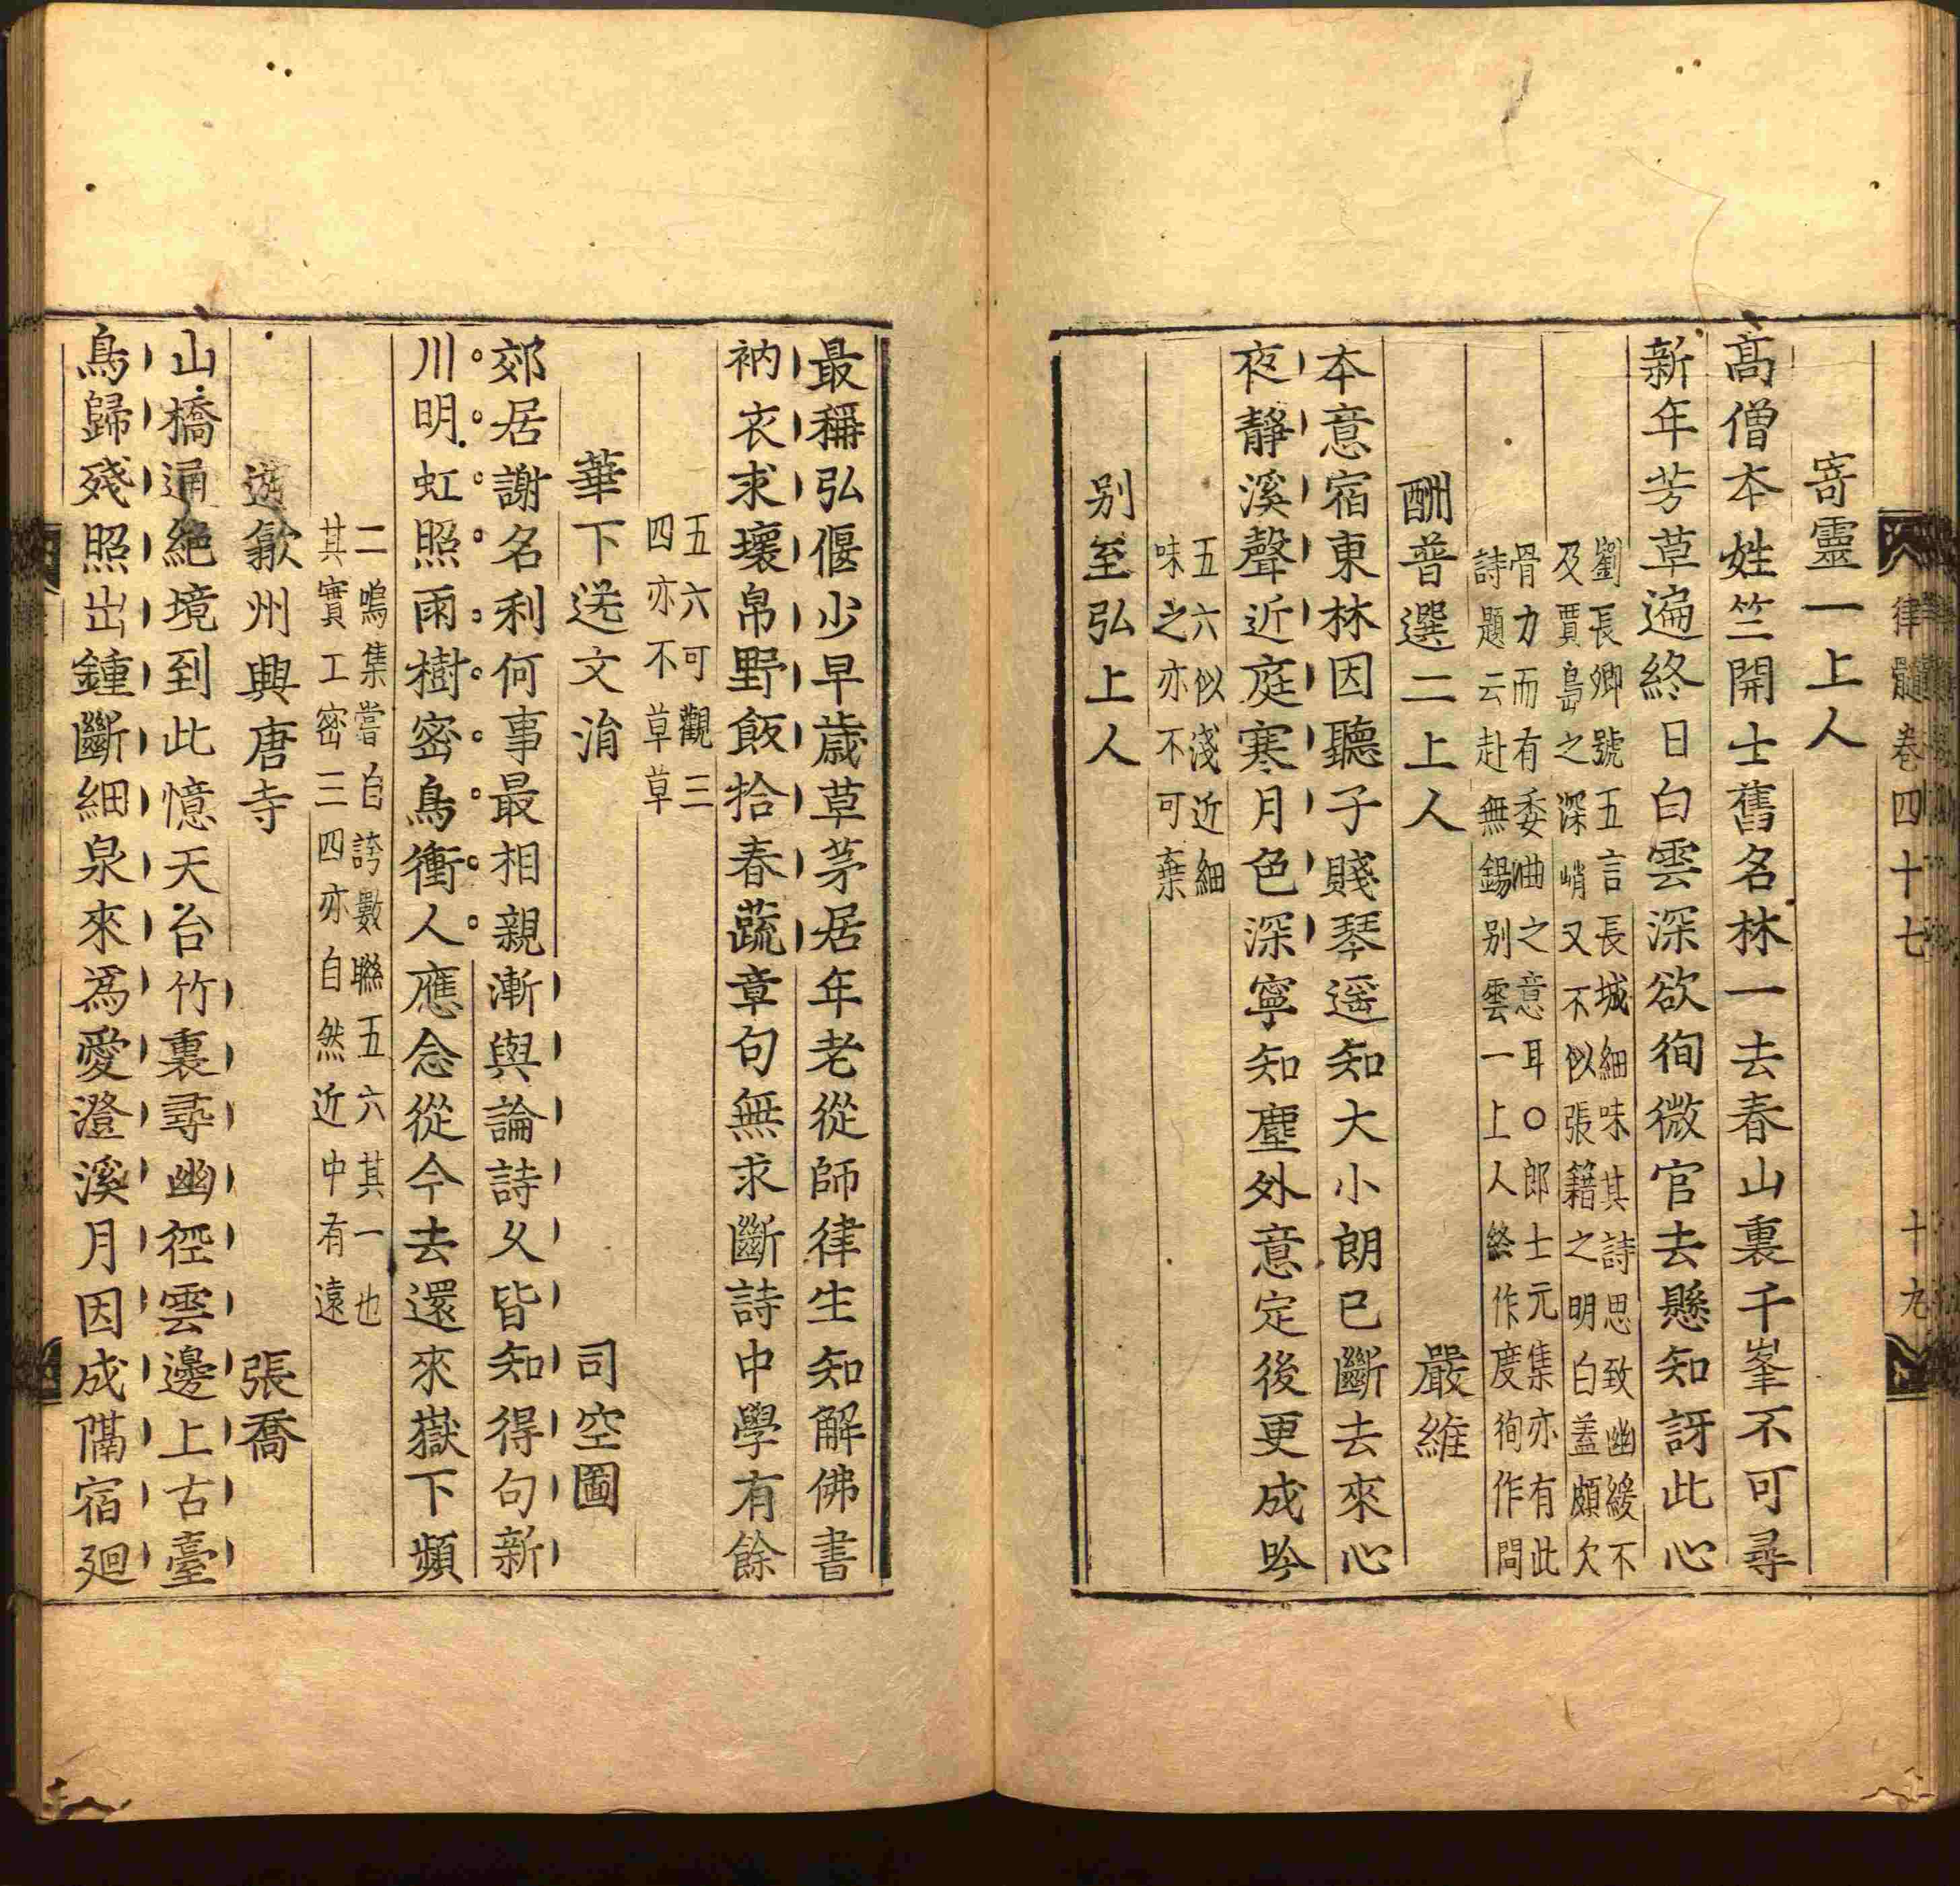 律髓卷四十七 十九
寄靈一上人
高僧本姓竺開士舊名林一去春山裏千峯不可尋
新年芳草遍終日白雲深欲徇微官去懸知訝此心
劉長卿號五言長城細味其詩思致幽緩不
及賈島之深峭又不似張籍之明白蓋頗欠
骨力而有委曲之意耳○郎士元集亦有此
詩題云赴無錫别雲一上人終作度徇作問
酬普選二上人 嚴維
本意宿東林因聽子賤琴遥知大小朗已斷去來心
夜靜溪聲近庭寒月色深寧知塵外意定後更成吟
五六似淺近細
味之亦不可棄
别至弘上人
最稱弘偃少早歲草茅居年老從師律生知解佛書
衲衣求壞帛野飯拾春蔬章句無求斷詩中學有餘
五六可觀三
四亦不草草
華下送文涓 司空圖
郊居謝名利何事最相親漸與論詩乆皆知得句新
川明虹照雨樹密鳥衝人應念從今去還來嶽下頻
二鳴集嘗自誇數聯五六其一也
其實工密三四亦自然近中有遠
遊歙州興唐寺 張喬
山橋通絶境到此憶天台竹裏尋幽徑雲邊上古臺
鳥歸殘照出鍾斷細泉來爲愛澄溪月因成隔宿廻